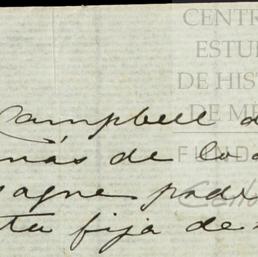 CENTR
ESTU
DE HIST
DE ME
FUND
Campbell d
más de lo
pod
ta fija de